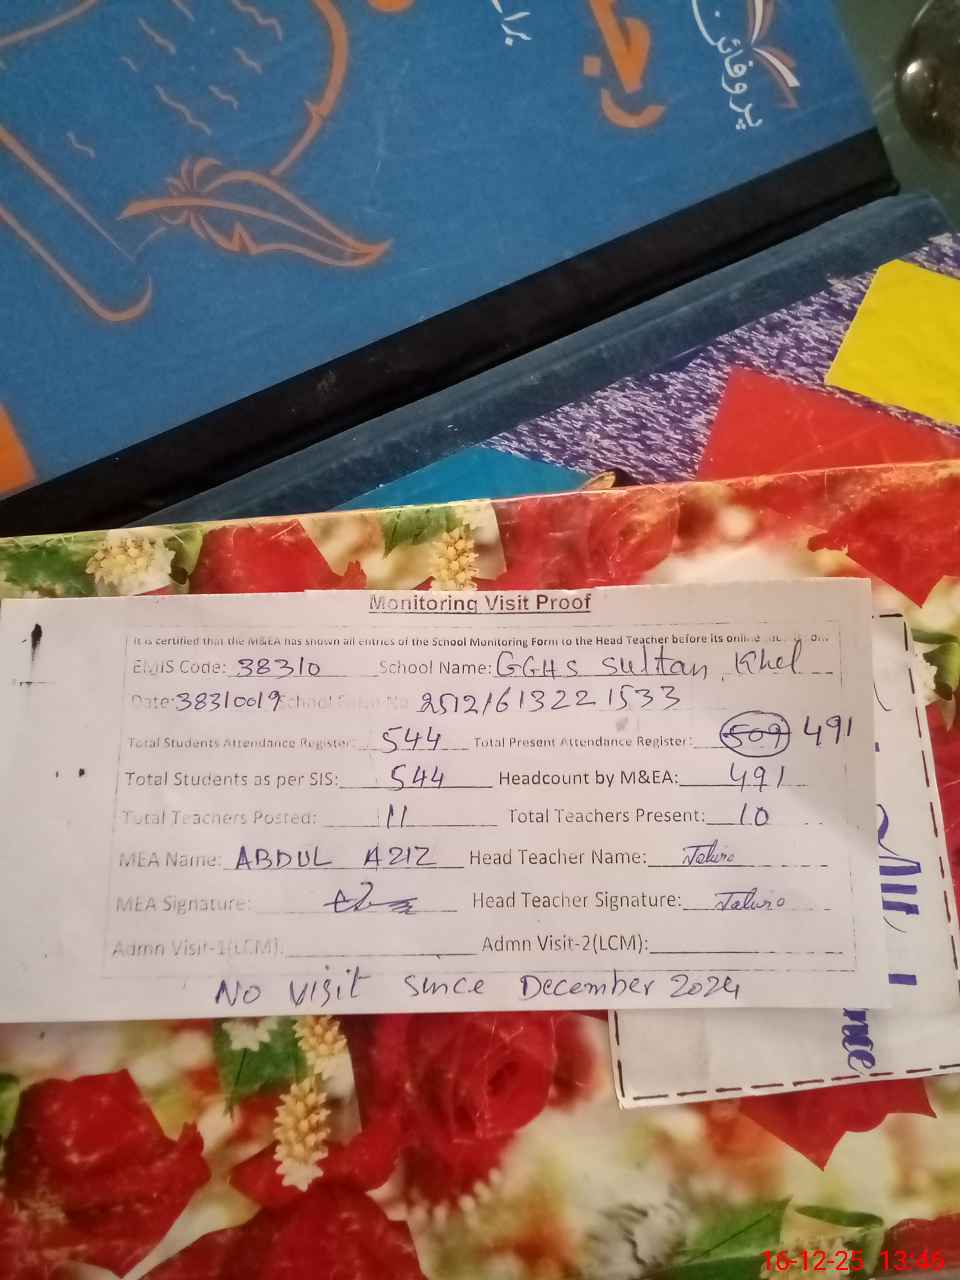 برائے
رجسٹر
پروفائل
Monitoring Visit Proof
It is certified that the M&EA has shown all entries of the School Monitoring Form to the Head Teacher before its online
EMIS Code: 38310 School Name: GGHS Sultan Khel
Date: 38310019 School Form No 2512161322 1533
Total Students Attendance Register: 544 Total Present Attendance Register: 509 491
Total Students as per SIS: 544 Headcount by M&EA: 491
Total Teachers Posted: 11 Total Teachers Present: 10
MEA Name: ABDUL AZIZ Head Teacher Name:
MEA Signature: Head Teacher Signature:
Admn Visit-1(LCM): Admn Visit-2(LCM):
No visit since December 2024
16-12-25 13:46